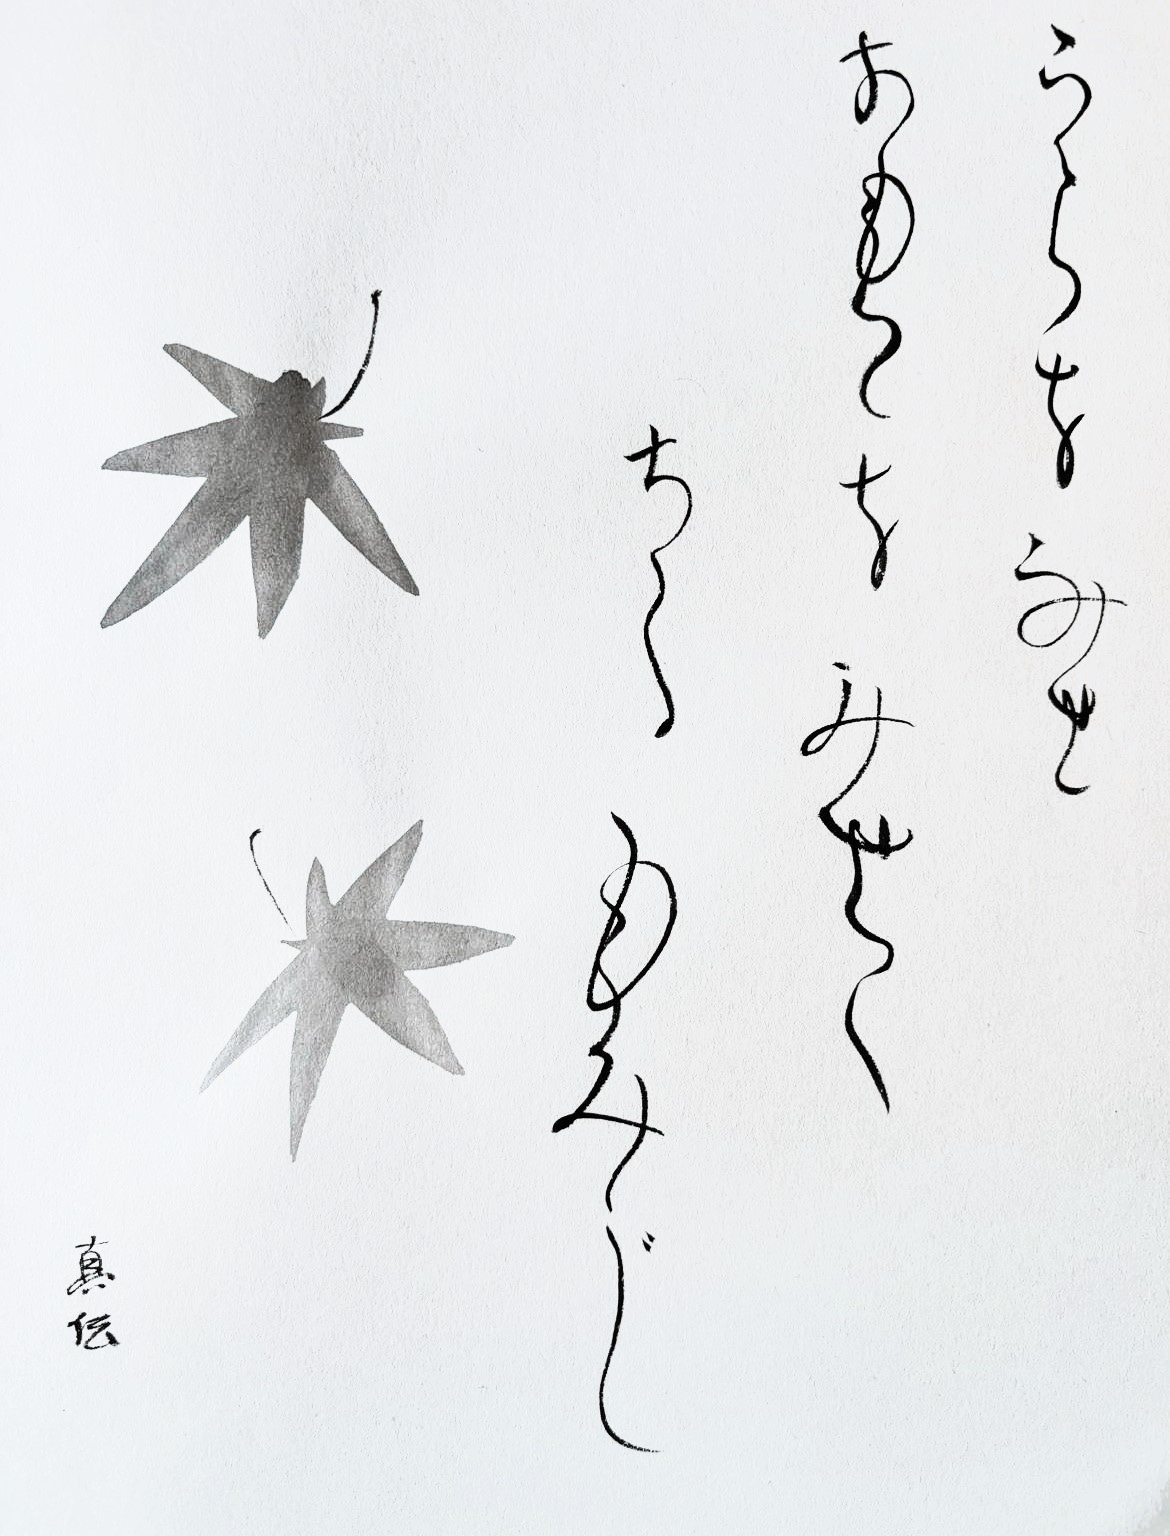 うらをみせ
おもてをみせて
ちるもみじ
真伝